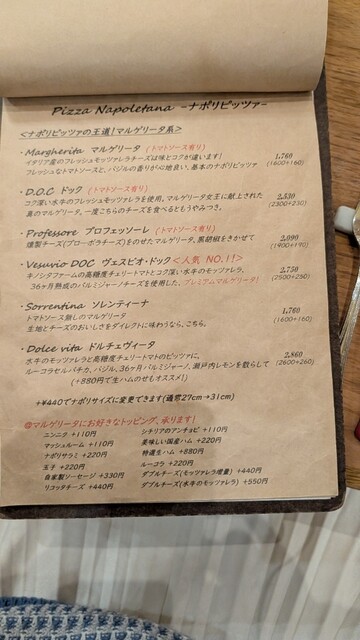 Pizza Napoletana -ナポリピッツァ-
<ナポリピッツァの王道!マルゲリータ系>
・Margherita マルゲリータ (トマトソース有り)
イタリア産のフレッシュモッツァレラチーズは味とコクが違います!
フレッシュなトマトソースと、バジルの香りが心地良い、基本のナポリピッツァ
1,760
(1600+160)
・D.O.C ドック (トマトソース有り)
コク深い水牛のフレッシュモッツァレラを使用。マルゲリータ女王に献上された
真のマルゲリータ。一度こちらのチーズを食べるともうやみつき。
2,530
(2300+230)
・Professore プロフェッソーレ (トマトソース有り)
燻製チーズ(プローボラチーズ)をのせたマルゲリータ。黒胡椒をきかせて
2,090
(1900+190)
・Vesuvio DOC ヴェスビオ・ドック<人気 NO.1!>
キノシタファームの高糖度チェリートマトとコク深い水牛のモッツァレラ、
36ヶ月熟成のパルミジャーノチーズを使用した、プレミアムマルゲリータ!
2,750
(2500+250)
・Sorrentina ソレンティーナ
トマトソース無しのマルゲリータ
生地とチーズのおいしさをダイレクトに味わうなら、こちら。
1,760
(1600+160)
・Dolce vita ドルチェヴィータ
水牛のモッツァレラと高糖度チェリートマトのピッツァに、
ルーコラセルバチカ、バジル、36ヶ月パルミジャーノ、瀬戸内レモンを散らして
(+880円で生ハムのせもオススメ!)
2,860
(2600+260)
+¥440でナポリサイズに変更できます(通常27cm→31cm)
@マルゲリータにお好きなトッピング、承ります!
ニンニク +110円
マッシュルーム +110円
ナポリサラミ +220円
玉子 +220円
自家製ソーセージ +330円
リコッタチーズ +440円
シチリアのアンチョビ +110円
美味しい国産ハム +220円
特選生ハム +880円
ルーコラ +220円
ダブルチーズ(モッツァレラ増量) +440円
ダブルチーズ(水牛のモッツァレラ) +550円